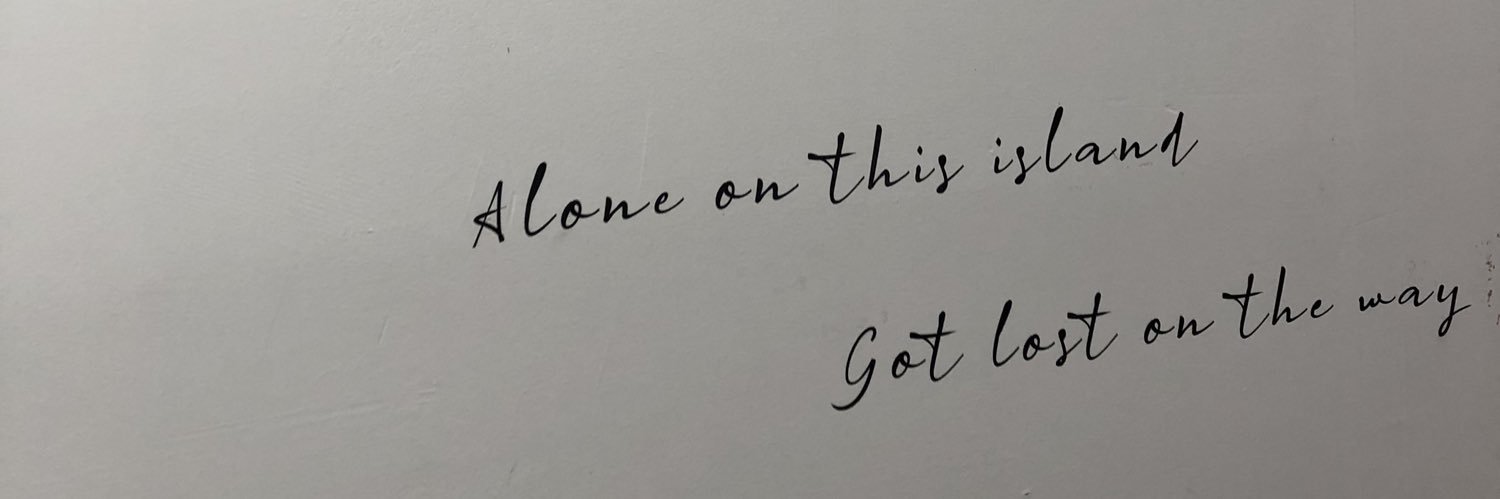 Alone on this island
Got lost on the way